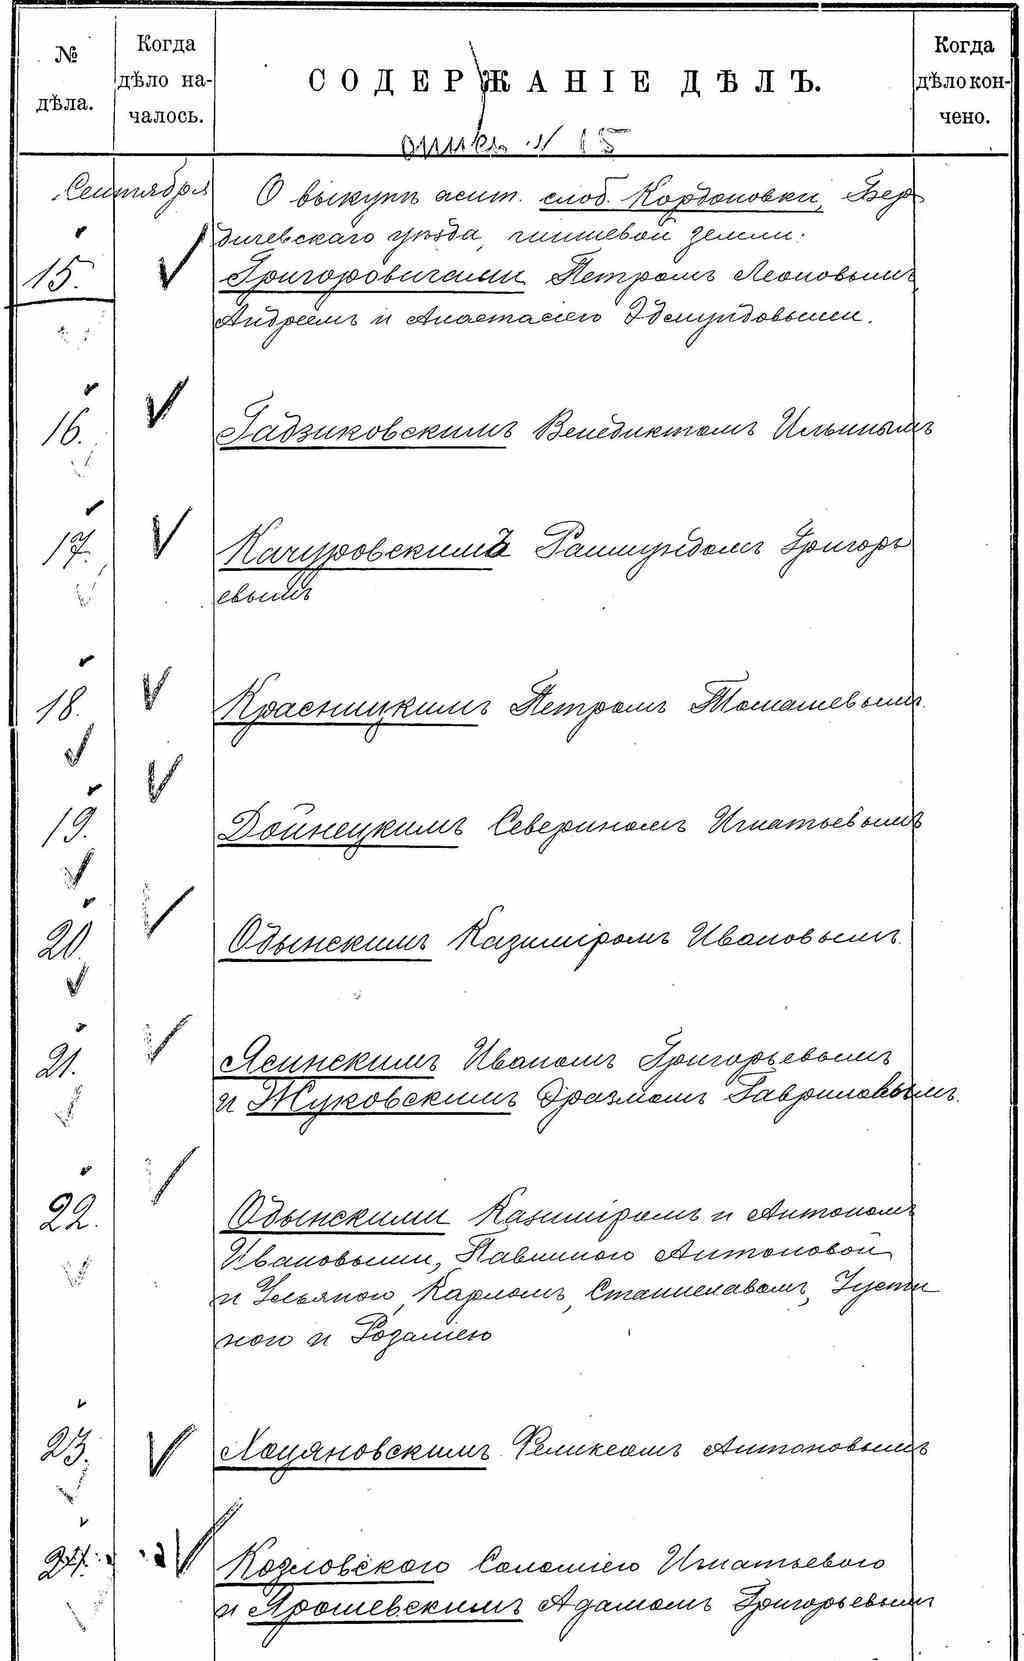 № дѣла.
Когда дѣло на-
чалось.
СОДЕРЖАНІЕ ДѢЛЪ.
Когда дѣло кон-
чено.
опись № 15
Сентября
О выкупѣ жит. слоб. Кордоновки, Бер
дичевскаго уѣзда, чиншевой земли:
15. Григоровичами Петромъ Леоновымъ,
Андреемъ и Анастасіею Эдмундовыми.
16. Гадзиковскимъ Венедиктомъ Ильинымъ
17. Качуровскимъ Раймундомъ Григорь
евымъ
18. Красницкимъ Петромъ Томашевымъ.
19. Дойнецкимъ Севериномъ Игнатьевымъ
20. Одынскимъ Казиміромъ Ивановымъ.
21. Ясинскимъ Иваномъ Григорьевымъ
и Жуковскимъ Эразмомъ Гавриловымъ.
22. Одынскими Казиміромъ и Антономъ
Ивановыми, Павлиною Антоновой
и Ульяною, Карломъ, Станиславомъ, Густи
ною и Розаліею
23. Хоцяновскимъ Феликсомъ Антоновымъ
24. Козловскою Саломіею Игнатьевою
и Ярошевскимъ Адамомъ Григорьевымъ